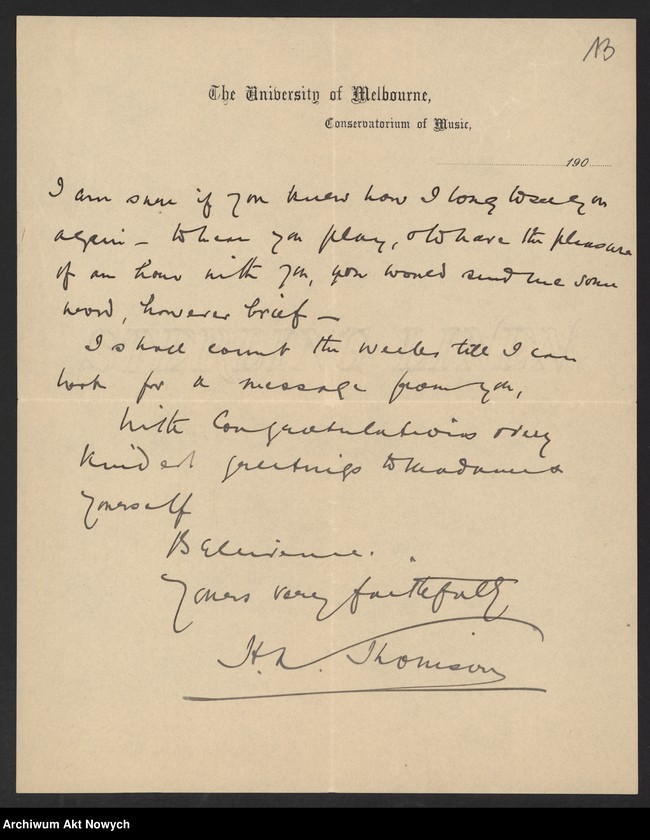 NB
The University of Melbourne,
Conservatorium of Music,
190
I am sure if you knew how I long to see you
again – to hear you play, & to have the pleasure
of an hour with you, you would send me some
word, however brief –
I shall count the weeks till I can
look for a message from you,
With Congratulations & very
kindest greetings to Madame &
yourself
Believe me.
Yours very faithfully
Thomson
Archiwum Akt Nowych